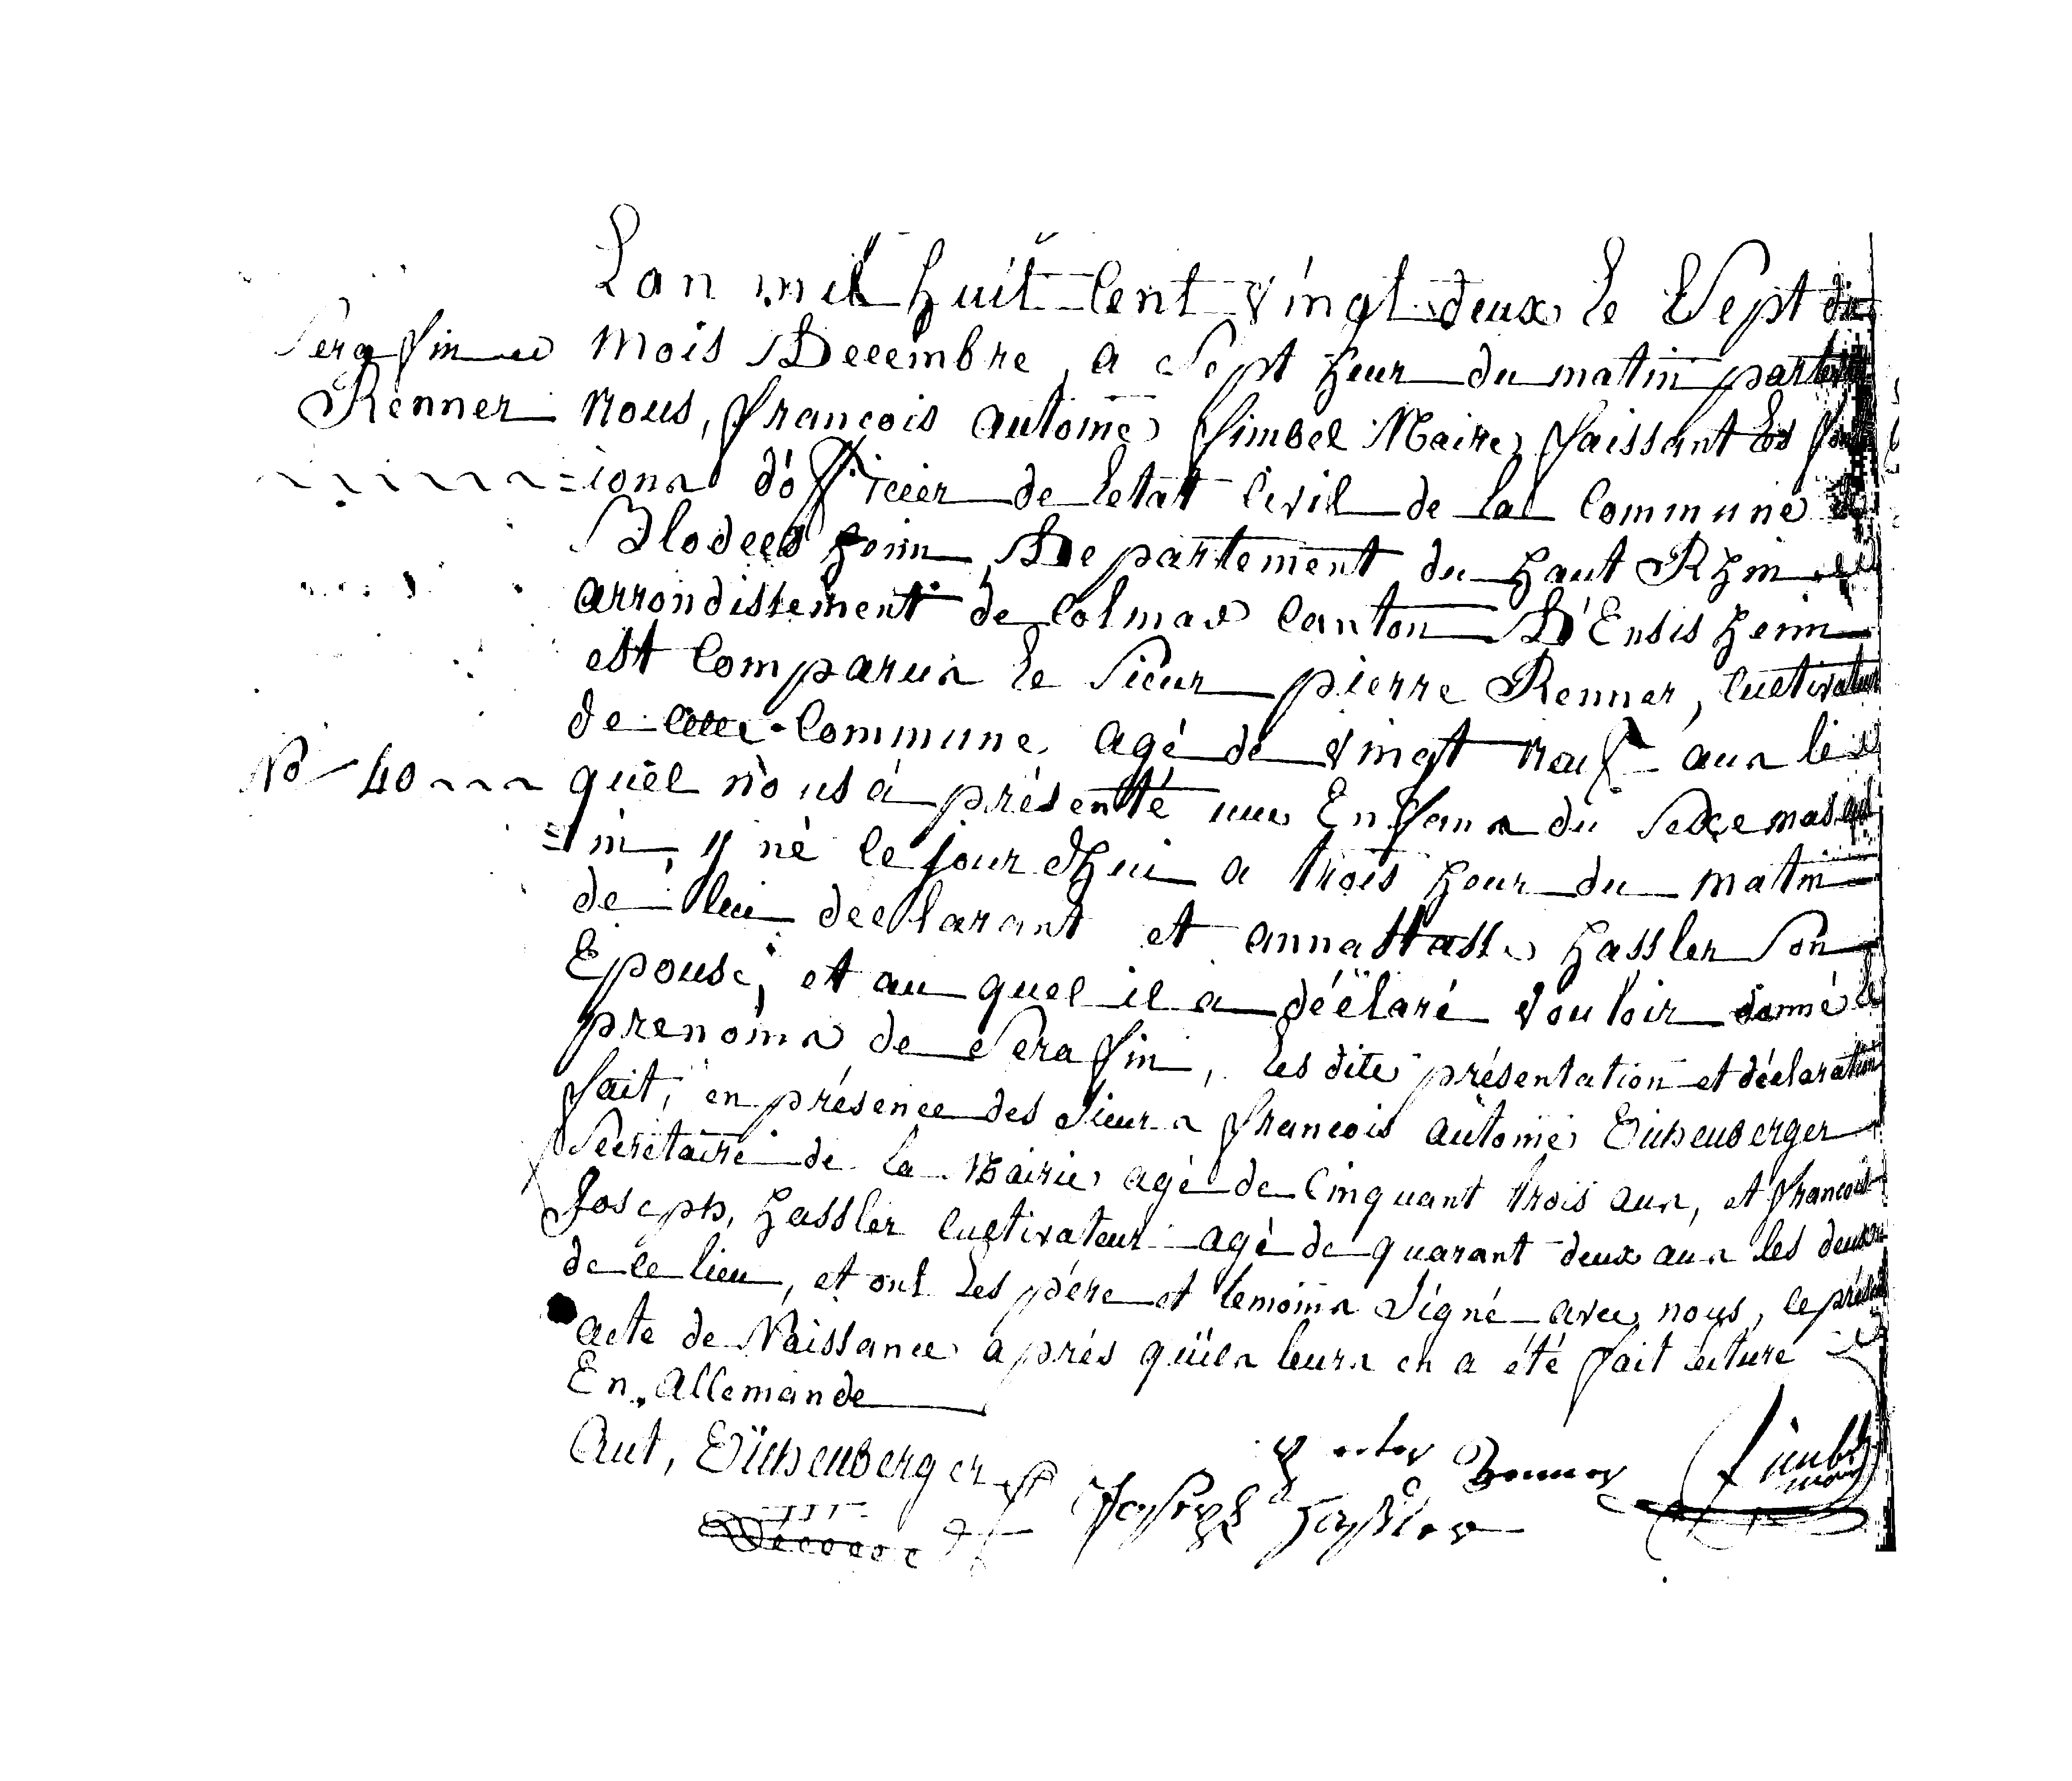 Lan mil huit Cent vingt deux le Sept du
Serafin
Renner
mois Decembre, a Sept heur du matin
nous, francois antoine fimbel Maire, faissant les
ions d'officier de letat Civil de la Commune
Blodelsheim, Departement du haut Rhin
arrondissement de Colmar Canton D'Ensisheim
est Comparus le Sieur pierre Renner, Cultivateur
de cette Commune agé de vingt neuf ans le
No 40
quel nous à présenté un Enfans du Sexe mascul
=in, né le jour dhui a trois heur du matin
de lui declarant et annastasse hassler Son
Epouse, et au quel il a déclaré vouloir donné le
prenoms de Serafin, les dite présentation et déclaration
fait, en présence des Sieurs francois antoine Eichenberger
Secretaire de la Mairie agé de Cinquant trois ans, et francois
Joseph, hassler Cultivateur agé de quarant deux ans les deux
de ce lieu, et ont les père et temoins Signé avec nous, le présent
acte de Naissance après qu'ils leurs en a été fait lecture
En Allemande
Ant, Eichenberger
Joseph Hassler